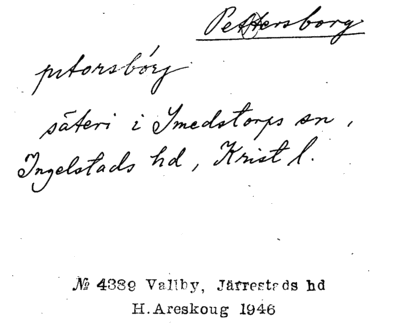 Pettersborg
pitorsbórj
säteri i Smedstorps sn,
Ingelstads hd, Krist l.
№ 4389 Vallby, Järrestads hd
H. Areskoug 1946